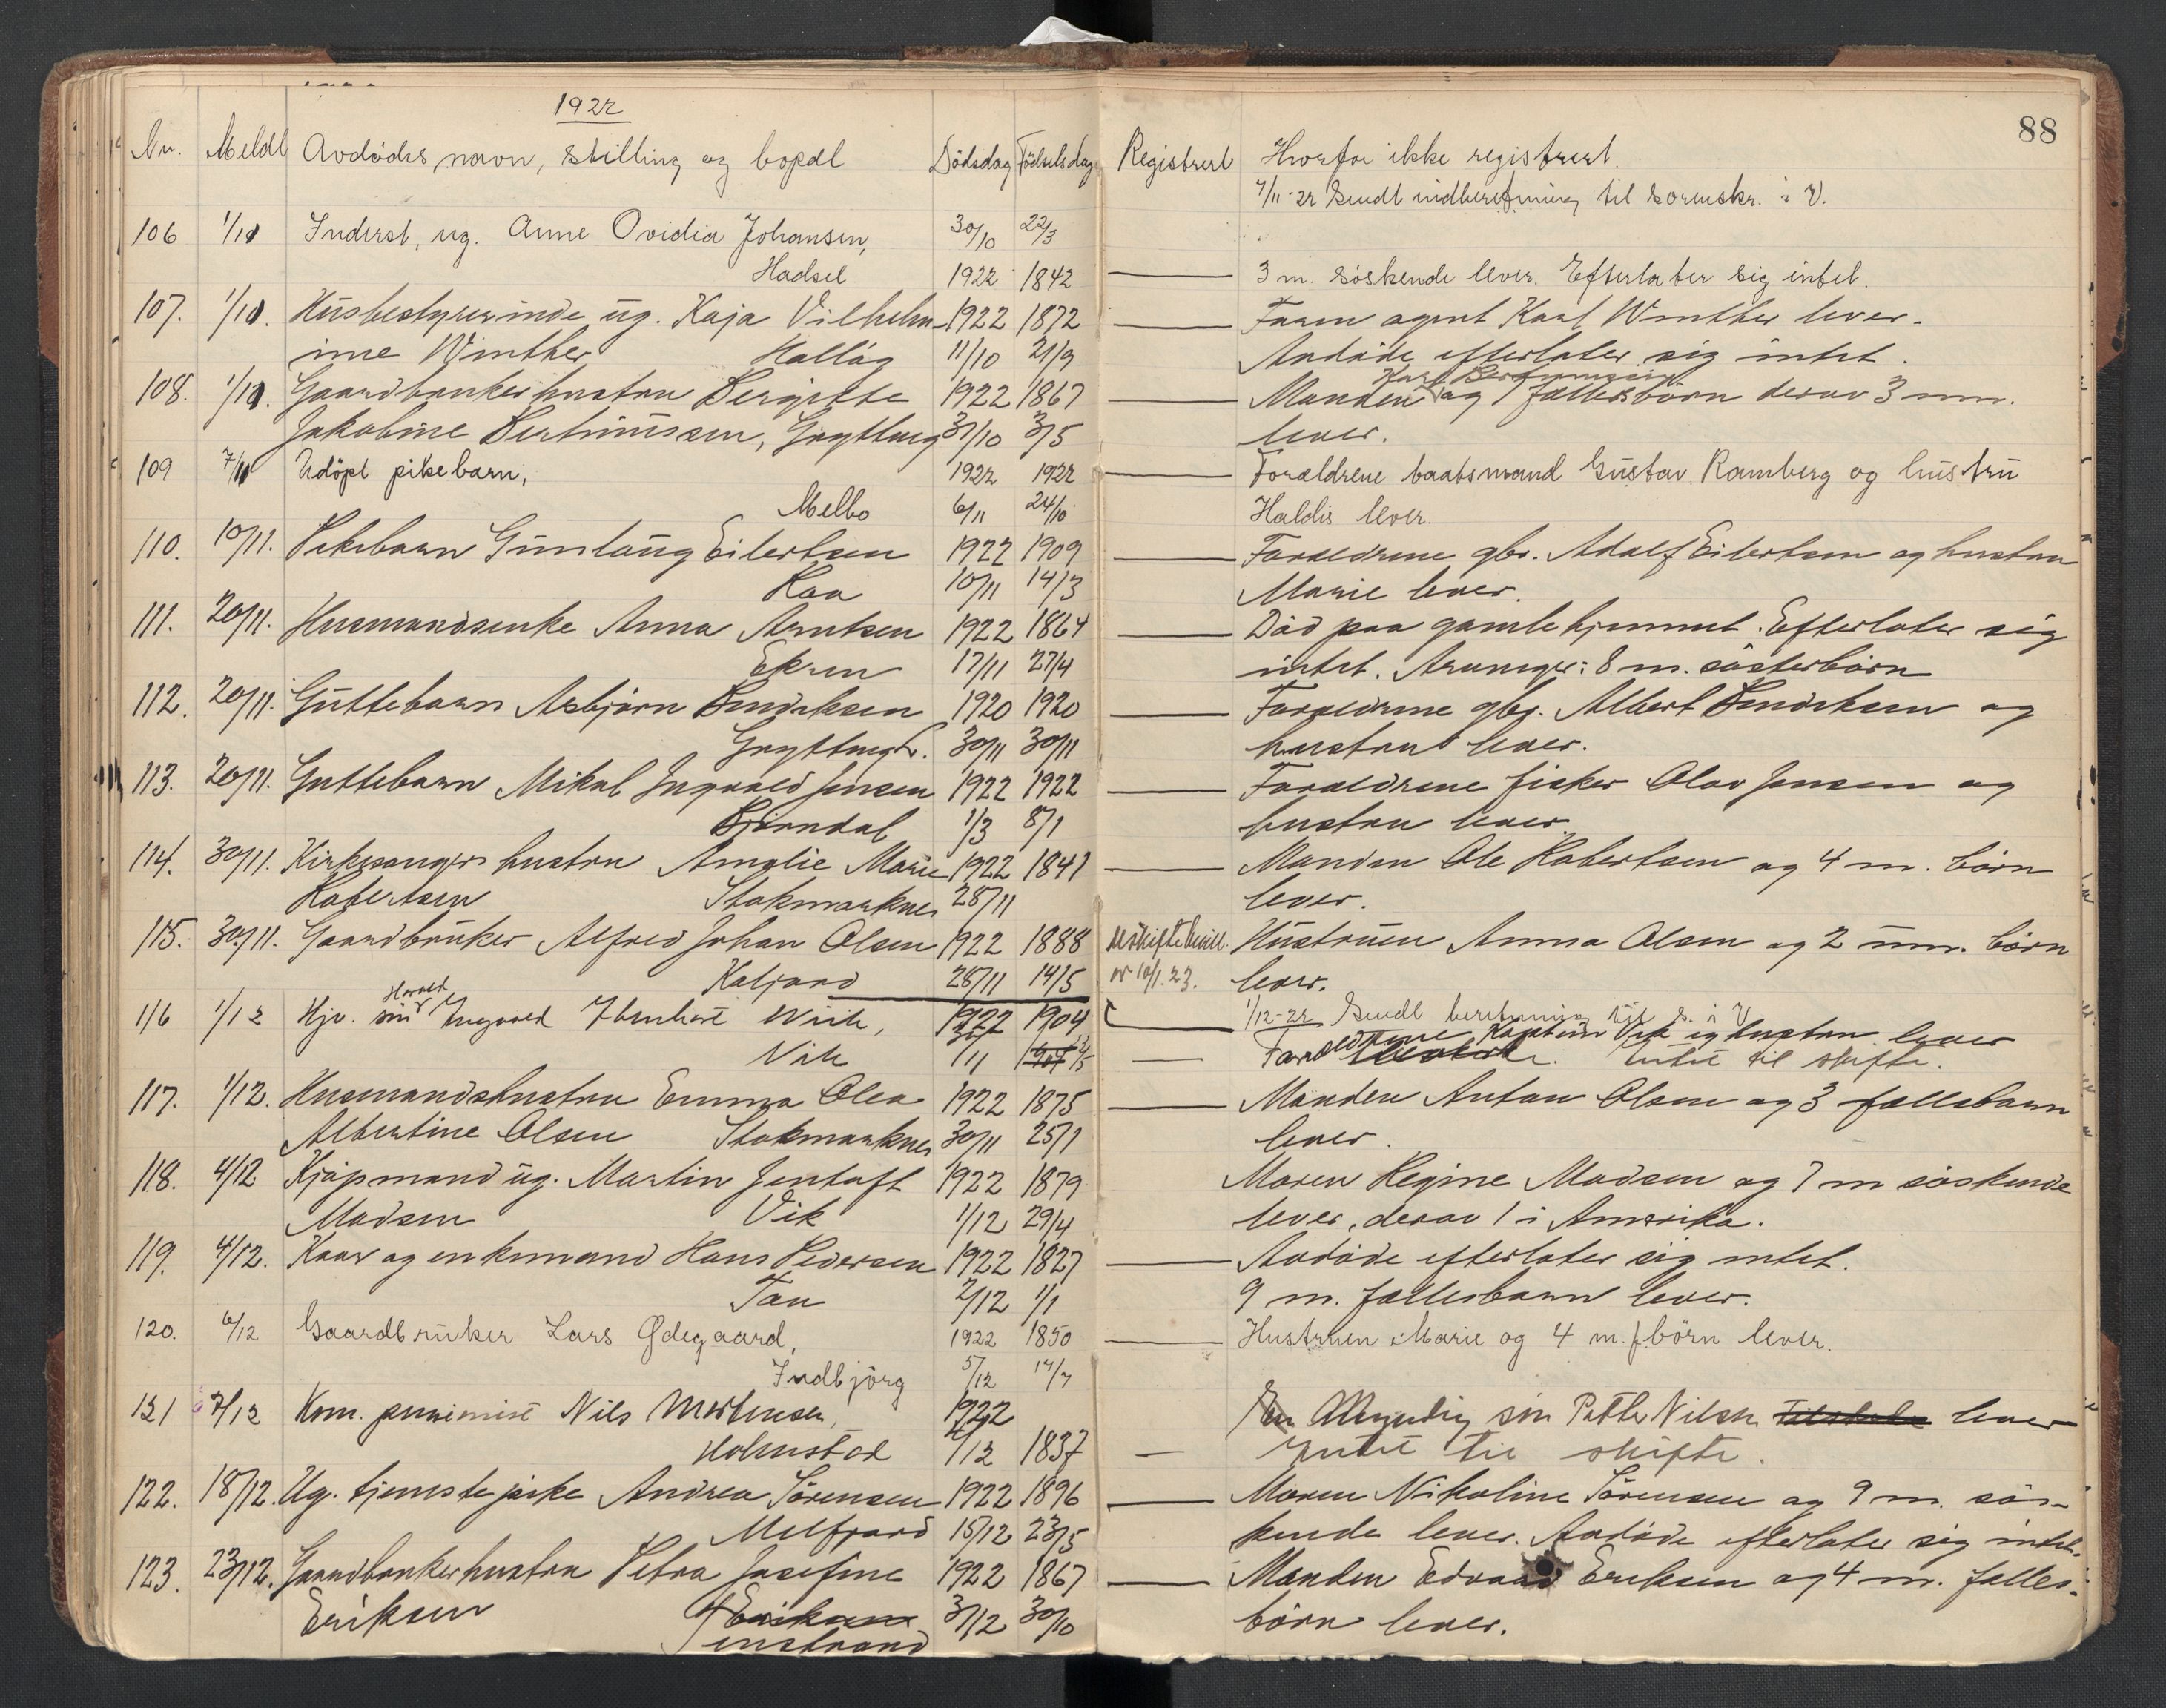 1922
88
Nr. Meldt Avdödes navn, stilling og bopæl Dödsdag Födselsdag Registrert Hvorfor ikke registrert.
7/11-22 Sendt indberetning til sorenskr. i V.
106 1/11 Inderst, ug. Anne Ovidia Johansen, 30/10 22/3
Hadsel 1922 1842 3 m. söskende lever. Efterlater sig intet.
107. 1/11. Husbestyrerinde ug. Kaja Vilhelm- 1922 1872 Faren agent Karl Winther lever.
ine Winther 11/10 21/9 Avdøde efterlater sig intet.
108. 1/11. Gaardbrukerhustru Bergitte 1922 1867 Manden og 7 fællesbörn derav 3 um.
Jakobine Bertinussen, Grytting 31/10 3/5 lever.
109 7/11 Udöpt pikebarn, 1922 1922 Forældrene baatsmand Gustav Ramberg og hustru
Melbo 6/11 24/10 Haldis lever.
110. 10/11. Pikebarn Gunlaug Eilertsen 1922 1909 Forældrene gbr. Adolf Eilertsen og hustru
10/11 14/3 Marie lever.
111. 20/11. Husmandsenke Anna Arntsen 1922 1864 Död paa gamlehjemmet. Efterlater sig
Ekren 17/11 27/4 intet. Arvinger: 8 m. søsterbörn
112. 20/11. Guttebarn Asbjørn Bendiksen 1920 1920 Forældrene gbr. Albert Bendiksen og
30/11 30/11 hustru lever.
113. 20/11. Guttebarn Mikal Ingvald Jensen 1922 1922 Forældrene fisker Olav Jensen og
Bjørndal 1/3 8/1 hustru lever.
114. 30/11. Kirkesangers hustru Amalie Marie 1922 1841 Manden Ole Robertsen og 4 m. börn
Robertsen Stokmarknes 28/11 lever.
115. 30/11. Gaardbruker Alfred Johan Olsen 1922 1888 Hustruen Anna Olsen og 2 um. börn
28/11 14/5 10/1.23. lever.
116 1/12 Hjv. sön Harald Ingvald Wiik, 1922 1904 1/12-22 Sendt beretning til S. i V
Vik Forældrene Vik og hustru lever
Intet til skifte.
117. 1/12. Husmandshustru Emma Olea 1922 1875 Manden Anton Olsen og 3 fællesbarn
Albertine Olsen Stokmarknes 30/11 25/1 lever.
118. 4/12 Kjøpmand ug. Martin Jentoft 1922 1879 Moren Regine Madsen og 7 m søskende
Madsen Vik 1/12 29/4 lever, derav 1 i Amerika.
119. 4/12. Kaar og enkemand Hans Pedersen 1922 1827 Avdøde efterlater sig intet.
2/12 1/1 9 m. fællesbarn lever.
120. 6/12 Gaardbruker Lars Ødegaard, 1922 1850 Hustruen Marie og 4 m. f. börn lever.
Indbjörg 5/12 17/7
121 7/12 Kom. Nils Mortensen, 1922 En Myndig sön Petter Nilsen lever
Holmstad 1837 Intet til skifte.
122. 18/12. Ug. tjenestepike Andrea Sörensen 1922 1896 Moren Nikoline Sörensen og 9 m. søs-
Melfjord 15/12 23/5 kende lever. Avdøde efterlater sig intet.
123. 23/12. Gaardbrukerhustru Petra Josefine 1922 1867 Manden Edvard Eriksen og 4 m. fælles-
Eriksen Eriksen 3/12 30/10 börn lever.